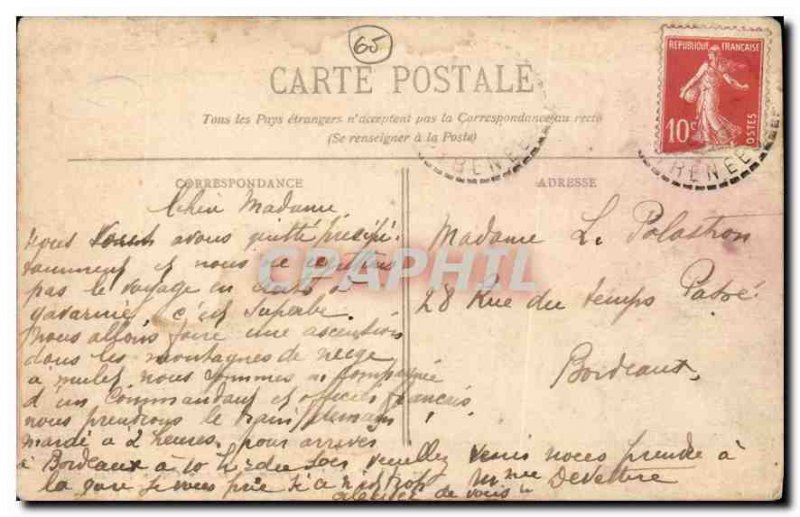 65
CARTE POSTALE
Tous les Pays étrangers n'acceptent pas la Correspondance au recto
(Se renseigner à la Poste)
REPUBLIQUE FRANÇAISE
10c
POSTES
RENEE
RENEES
CORRESPONDANCE
ADRESSE
Chère Madame
nous vous avons quitté précipi
tamment et nous ne
pas le voyage
gavarnie c'est Superbe.
nous allons faire une ascention
dans les montagnes de neige
à mulet nous sommes en compagnie
d'un Commandant et officiers français
nous prendrons le train demain
mardi à 2 heures. pour arriver
à Bordeaux à 10 h du soir veuillez venir nous prendre à
la gare si vous
de vous
Madame L. Polastron
28 Rue du temps Passé
Bordeaux
CPAPHIL